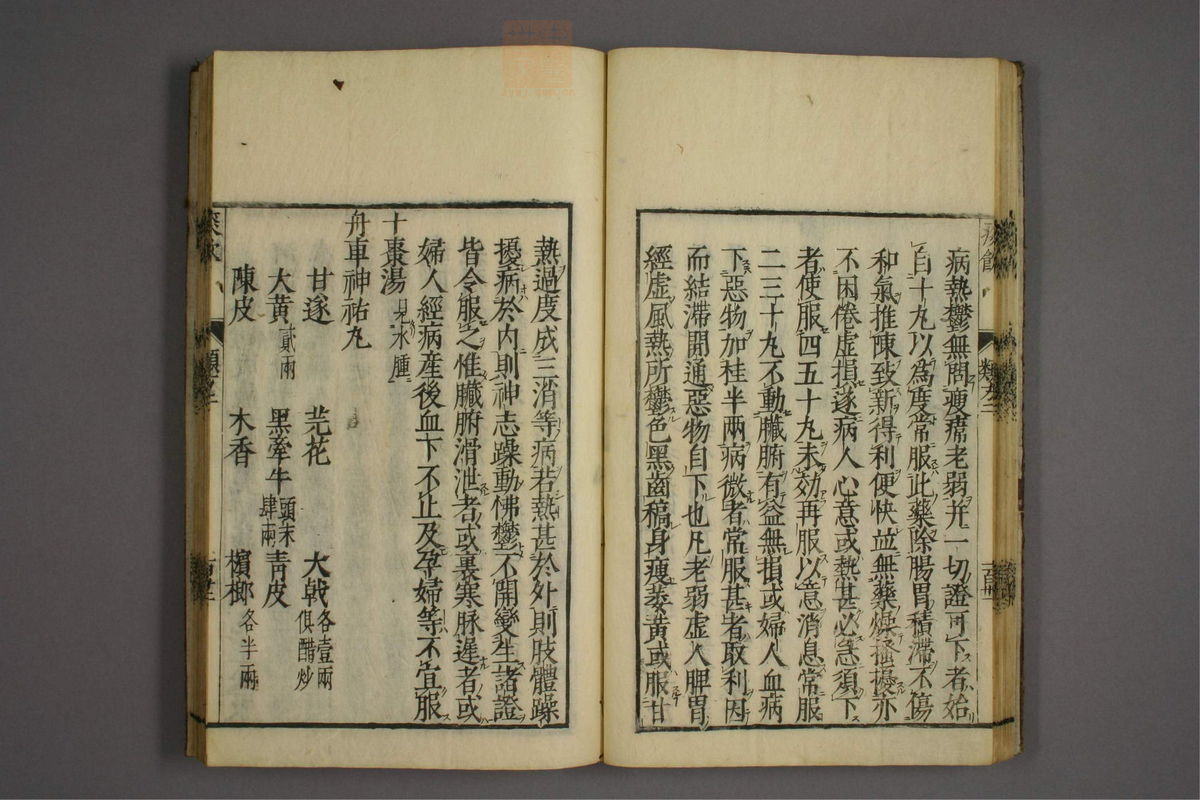 病熱鬱無問瘦瘠老弱并一切證可下者始
自十丸以為度常服此藥除腸胃積滯不傷
和氣推陳致新得利便快並無藥燥搔擾亦
不困倦虛損遂病人心意或熱甚必急須下
者使服四五十丸未効再服以意消息常服
二三十丸不動臟腑有益無損或婦人血病
下惡物加桂半兩病微者常服甚者取利因
而結滯開通惡物自下也凡老弱虛人脾胃
經虛風熱所鬱色黑齒稿身瘦萎黃或服甘
熱過度成三消等病若熱甚於外則肢體躁
擾病於內則神志躁動怫鬱不開變生諸證
皆令服之惟臟腑滑泄者或裏寒脉遲者或
婦人經病産後血下不止及孕婦等不宜服
十棗湯 見水腫
舟車神祐丸
甘遂 芫花 大戟 各壹兩俱醋炒
大黃 貳兩 黑牽牛 頭末肆兩 靑皮
陳皮 木香 檳榔 各半兩